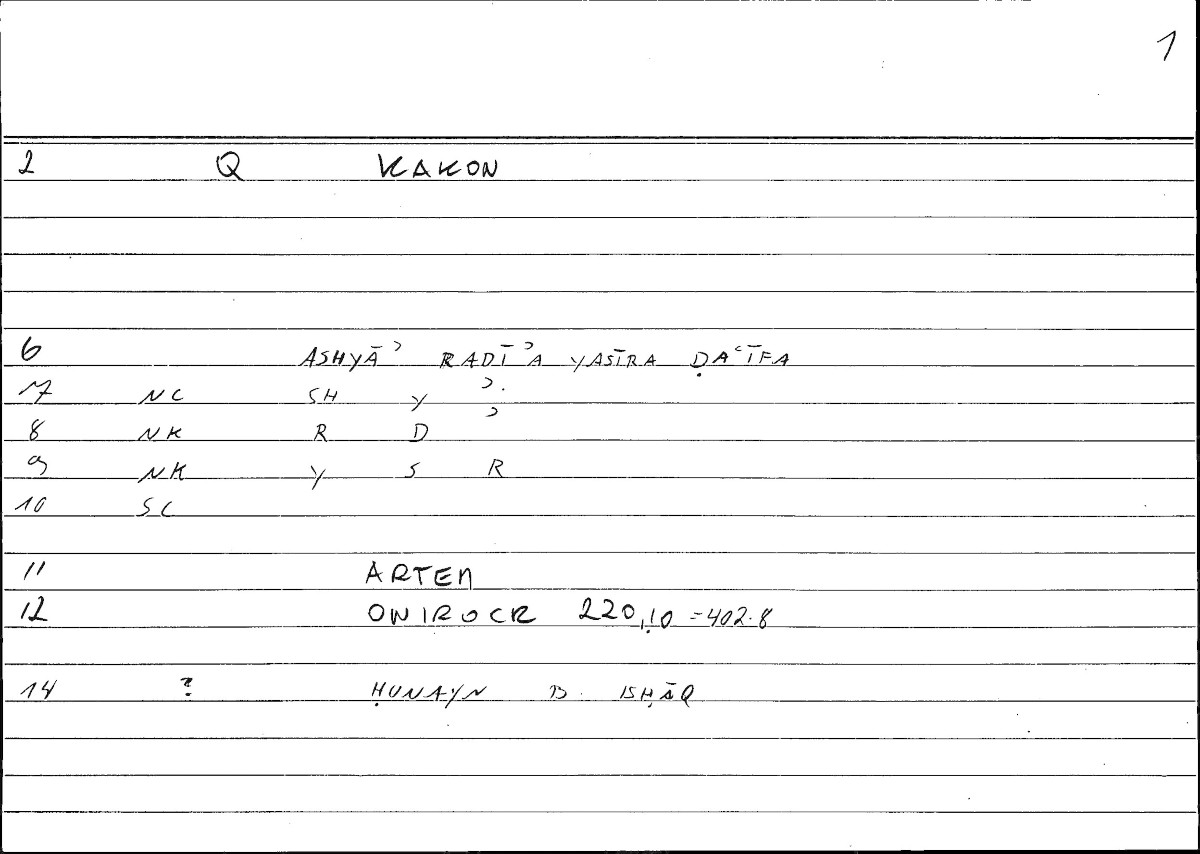 1
2 Q KAKON
6 ASHYĀʾ RADĪʾA YASĪRA ḌAʿĪFA
7 NC SH Y ʾ.
8 NK R D ʾ
9 NK Y S R
10 SC
11 ARTEM
12 ONIROCR 220,10 =402.8
14 ? ḤUNAYN B. ISḤĀQ